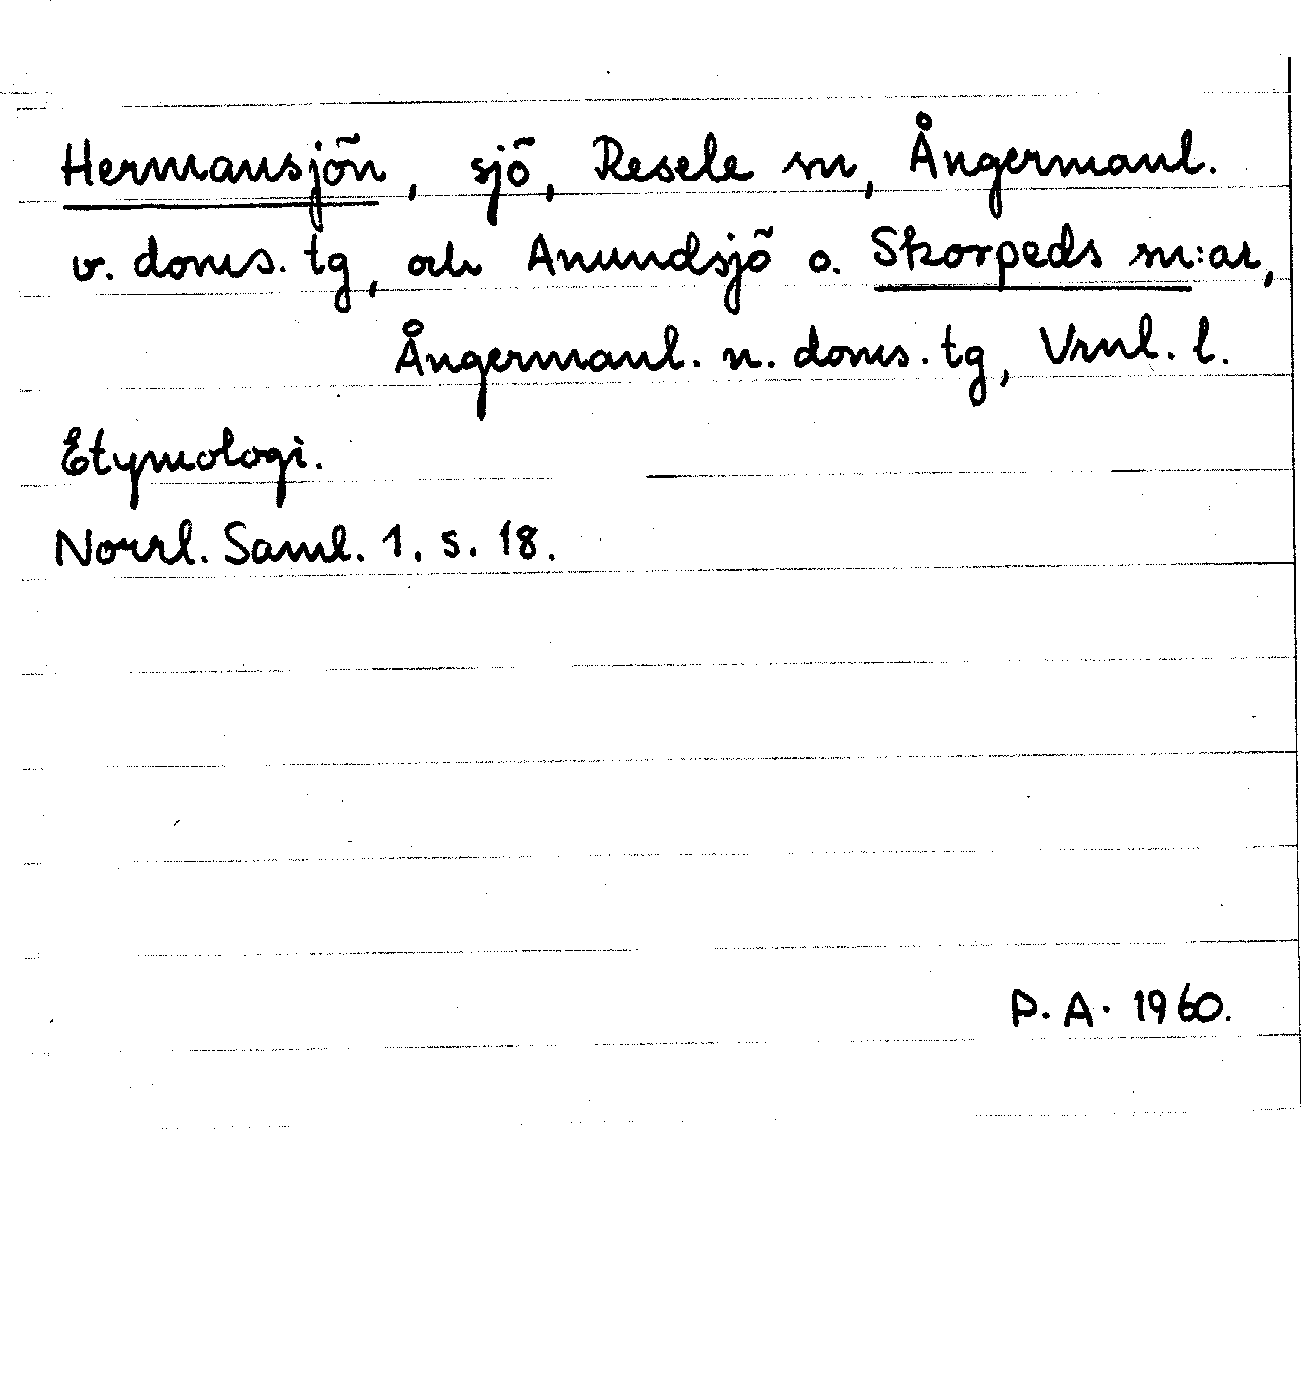 Hermansjön, sjö, Resele sn, Ångermanl.
v. doms. tg, och Anundsjö o. Skorpeds sn:ar,
Ångermanl. n. doms. tg, Vrnl. l.
Etymologi.
Norrl. Saml. 1. s. 18.
P. A. 1960.